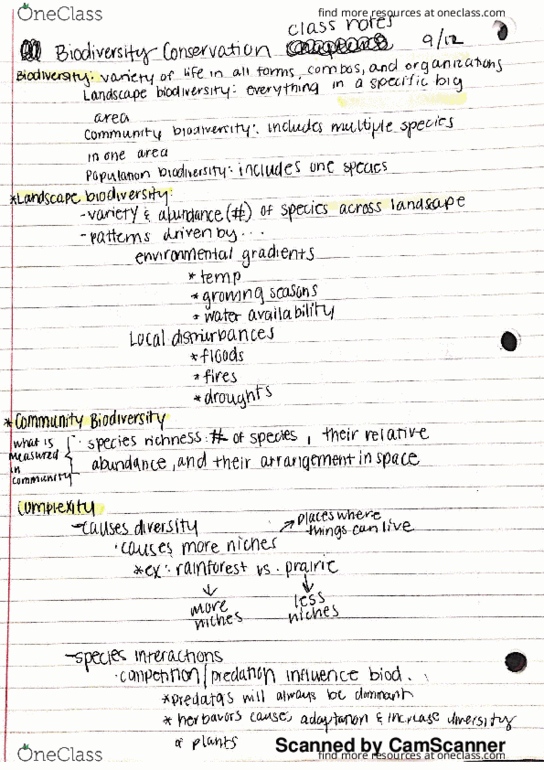 OneClass
find more resources at oneclass.com
find more resources at oneclass.com
class notes
Biodiversity Conservation 9/12
Biodiversity: variety of life in all forms, combos, and organizations
Landscape biodiversity: everything in a specific big
area
Community biodiversity: includes multiple species
in one area
Population biodiversity: includes one species
*Landscape biodiversity:
-variety & abundance (#) of species across landscape
-patterns driven by...
environmental gradients
*temp
*growing seasons
*water availability
Local disturbances
*floods
*fires
*droughts
*Community Biodiversity
what is measured in community
· species richness: # of species, their relative
abundance, and their arrangement in space
Complexity
-causes diversity → places where
things can live
· causes more niches
*ex: rainforest vs. prairie
↓ ↓
more less
niches niches
-species interactions
· competition/predation influence biod.
*predators will always be dominant
*herbavors cause adaptation & increase diversity
of plants
Scanned by CamScanner
OneClass
find more resources at oneclass.com
find more resources at oneclass.com